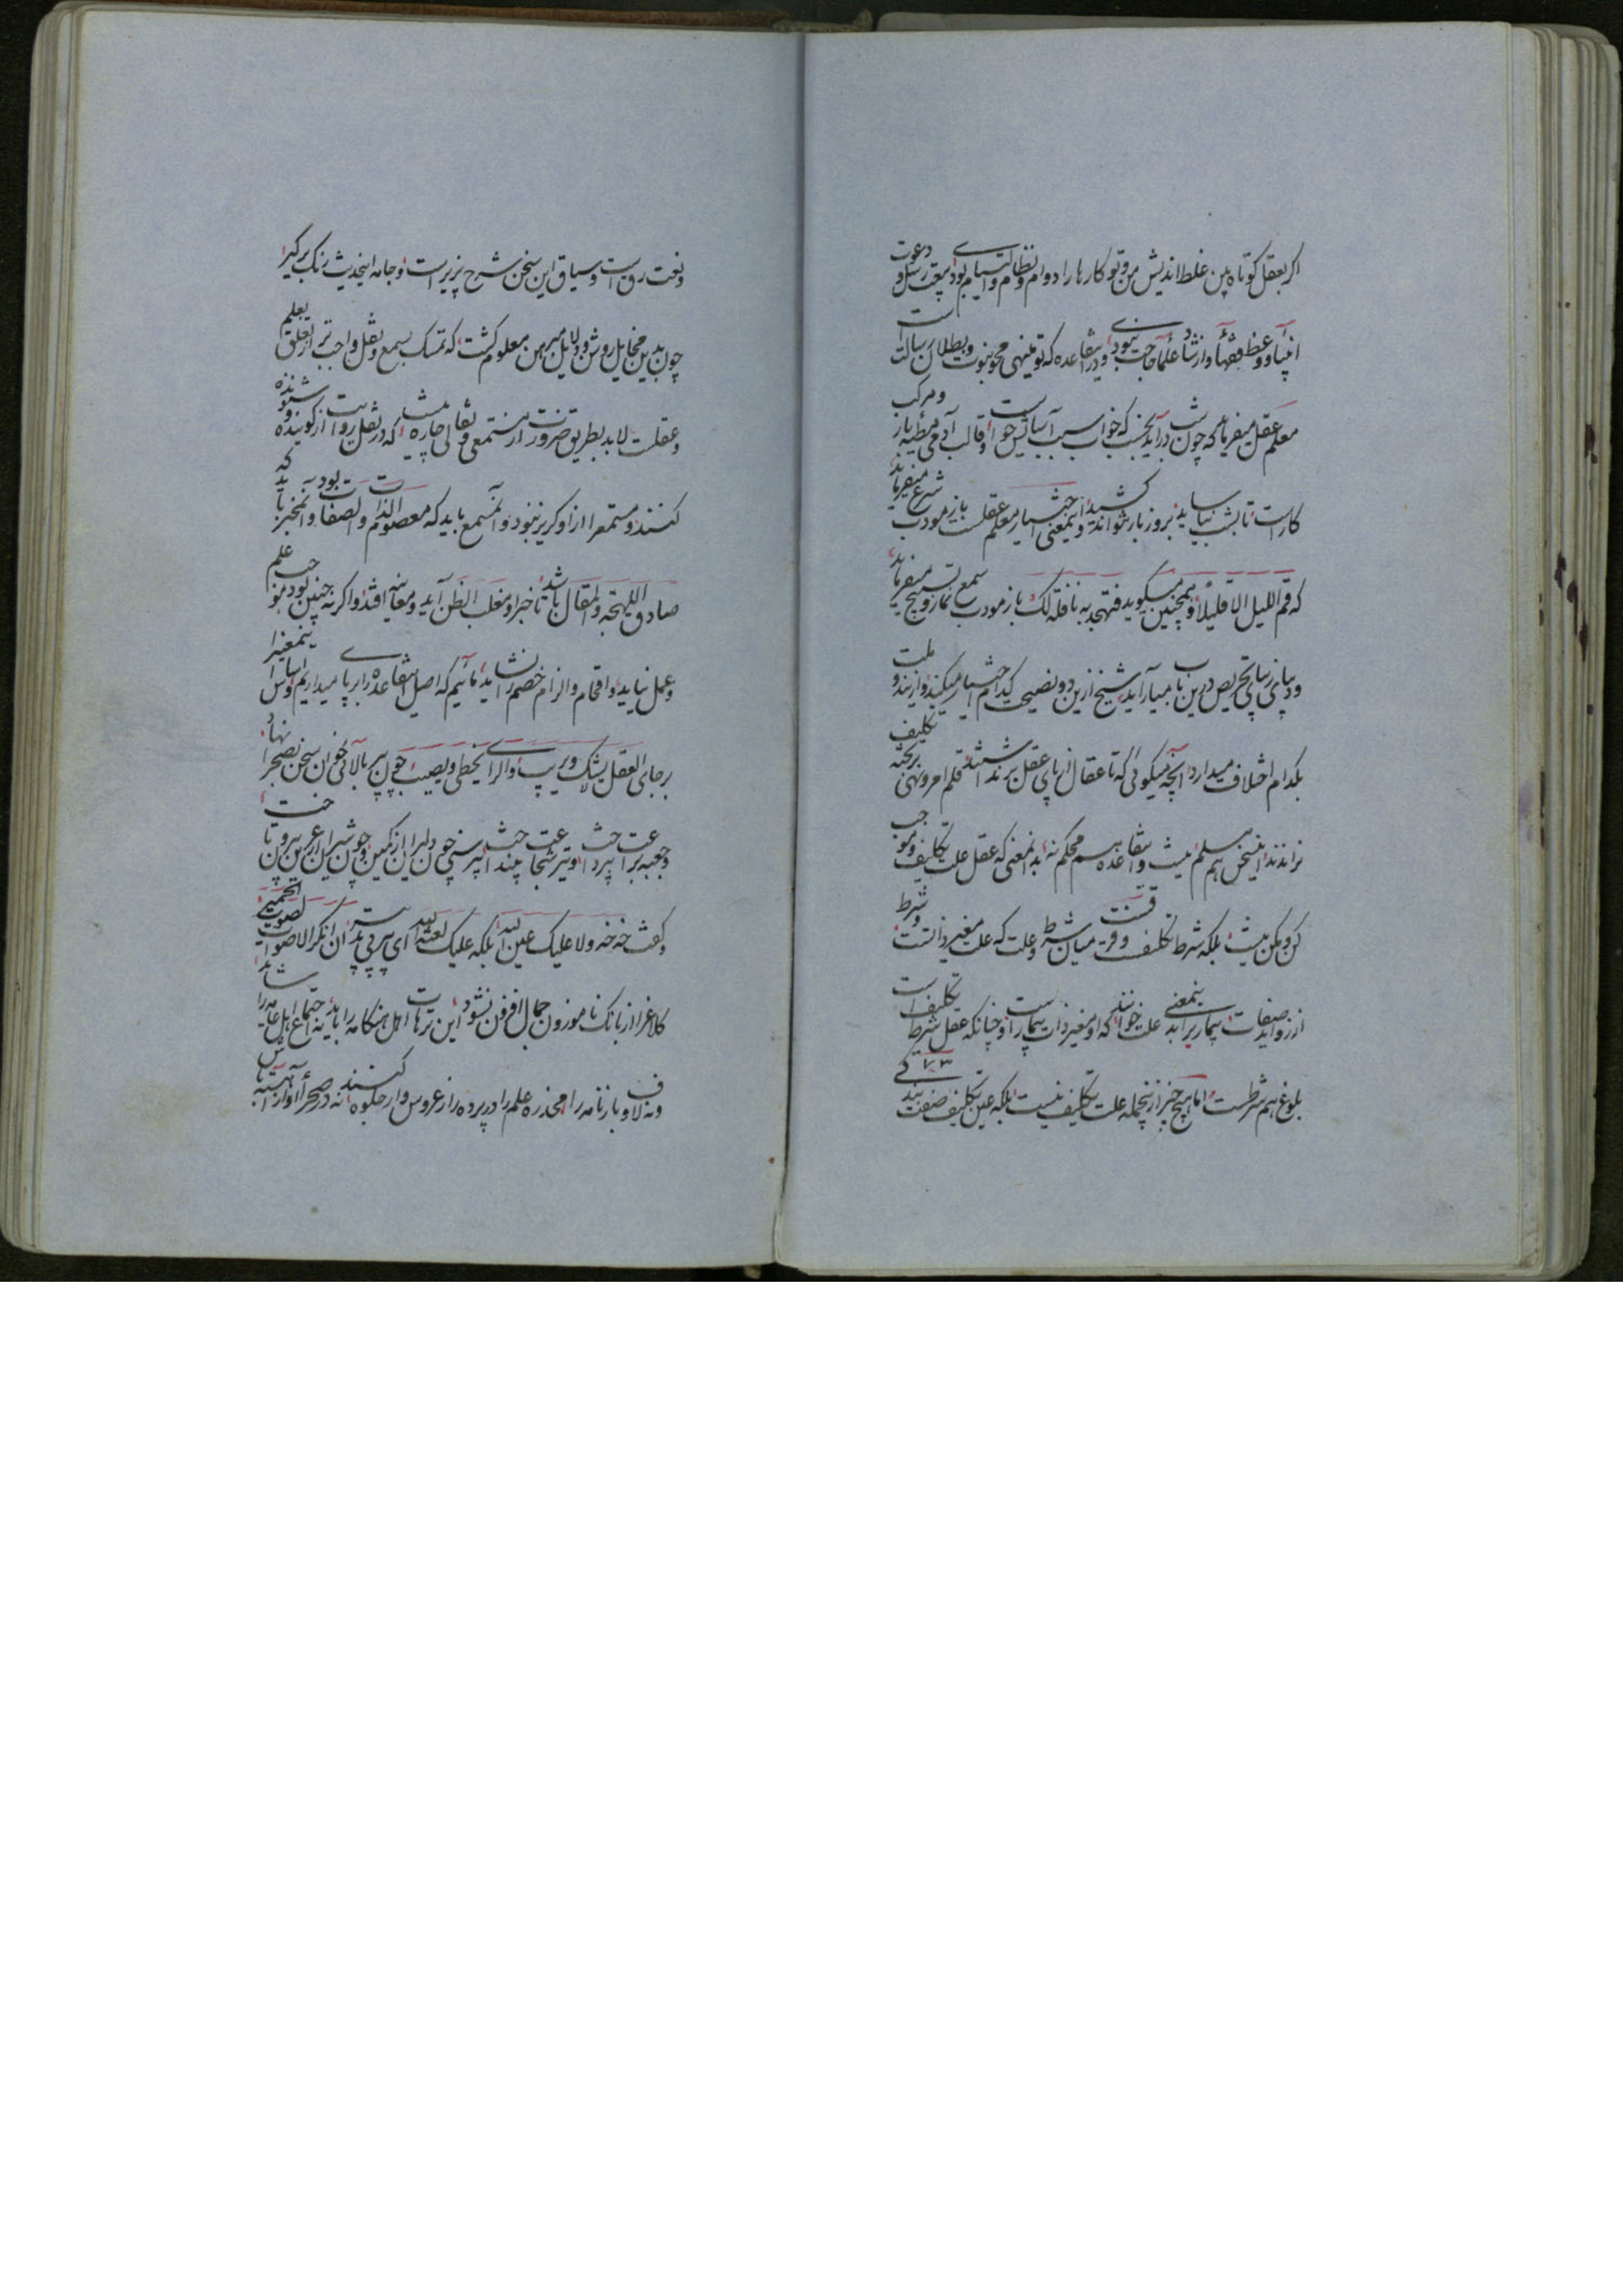 اگر بعقل کوتاه بین غلط اندیش من و تو کارها را دوام و نظام و التیامی بودی ببعثت رسل و دعوت
انبیا و وعظ فقها و ارشاد علما حاجت نبودی و درین قاعده که تو مینهی محو نبوت و بطلان رسالت است
معلم عقل میفرماید که چون شب درآید بخسب که خواب سبب آسایش حواس است و قالب آدمی مطیه بار و مرکب
کار است تا بشب نیاساید بروز بار نتواند کشید و اینمعنی اختیار معلم عقلست باز مودب شرع میفرماید
که قم اللیل الا قلیلا و همچنین میگوید فتهجد به نافلة لک باز مودب سمع نماز و تسبیح میفرماید
و بپای زبانی تحریص درین باب می آراید شیخ ازین دو نصیحت کدام اختیار میکند و ازین دو ملت
بکدام اختلاف میدارد آنچه میگوئی که تا عقال از پای عقل برنداشتند قلم امر و نهی بر تخته تکلیف
نراندند این سخن هم مسلم نیست و این قاعده هم محکم نه بدانمعنی که عقل علت تکلیف و موجب
کن و مکن نیست بلکه شرط تکلیفست و فرقست میان شرط و علت که علت مغیر ذاتست و شرط
از زواید صفات بیماری را بدینمعنی علت خوانند که او مغیر ذات بیمار است و چنانکه عقل شرط تکلیف است
بلوغ هم شرطست اما هیچ چیز ازینجمله علت تکلیف نیست بلکه عین تکلیف صفت بندگی
۷۳
و نعت رقیت است و سیاق این سخن شرح پذیر است و جامه اینحدیث رنگ برگیر
چون بدین مخایل روشن و دلایل مبرهن معلوم گشت که تمسک بسمع و نقل واجب تر از تعلق بعلم
و عقلست لابد بطریق ضرورت از مستمعی و نقالی چاره نیست که در نقل روایت از گوینده و شنونده
کنند و مستمع را از او گریز نبود و آنمستمع باید که معصوم الذات و الصفات بود و آنمخبر باید که
صادق اللهجه و المقال باشد تا خبر او مغلب الظن آید و معاینه افتد و اگر نه چنین بود موجب علم
و عمل نیاید و اقحام و الزام خصم را نشاید مائیم که اصل این قاعده را برپای میداریم و اساس اینمعنی را
بر جای العقل یشک و یریب و الرای یخطی و یصیب چون پیر بالائی خوان سخن بصحرا نهاد
و جعبه براعت بپرداخت و تیر شجاعت بینداخت پیر سرخی چون دلیران از کمین و چون شیران از عرین بیرون تاخت
و گفت خه خه و لا علیک عین الله بلکه علیک لعنة الله ای پیر بی تدبیر ان انکر الاصوات لصوت الحمیر
کلاغ را از بانگ ناموزون جمال افزون نشود این ترهات اهل هنگامه را باید نه اجتماع اهل عامه را شاید
و نه لاف و بارنامه را مخدره علم را در پرده راز عروس وار جلوه کنند نه در صحرا آواز آهسته باش